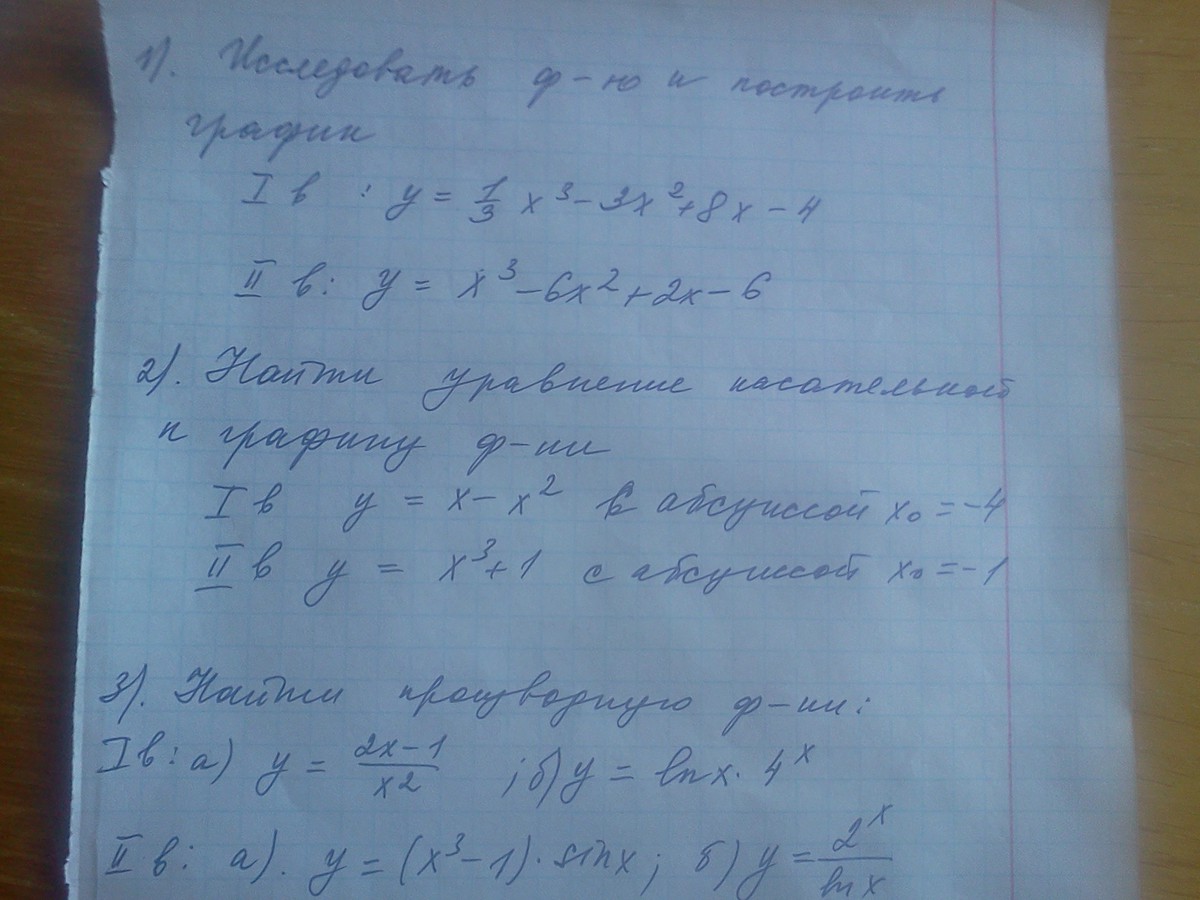 1). Исследовать ф-ю и построить
график
I в : y = 1/3 x³ - 3x² + 8x - 4
II в: y = x³ - 6x² + 2x - 6
2). Найти уравнение касательной
к графику ф-ии
I в y = x - x² с абсциссой x₀ = -4
II в y = x³ + 1 с абсциссой x₀ = -1
3). Найти производную ф-ии:
I в: а) y = (2x-1)/x² ; б) y = ln x · 4ˣ
II в: а). y = (x³ - 1) · sin x ; б) y = 2ˣ/ln x